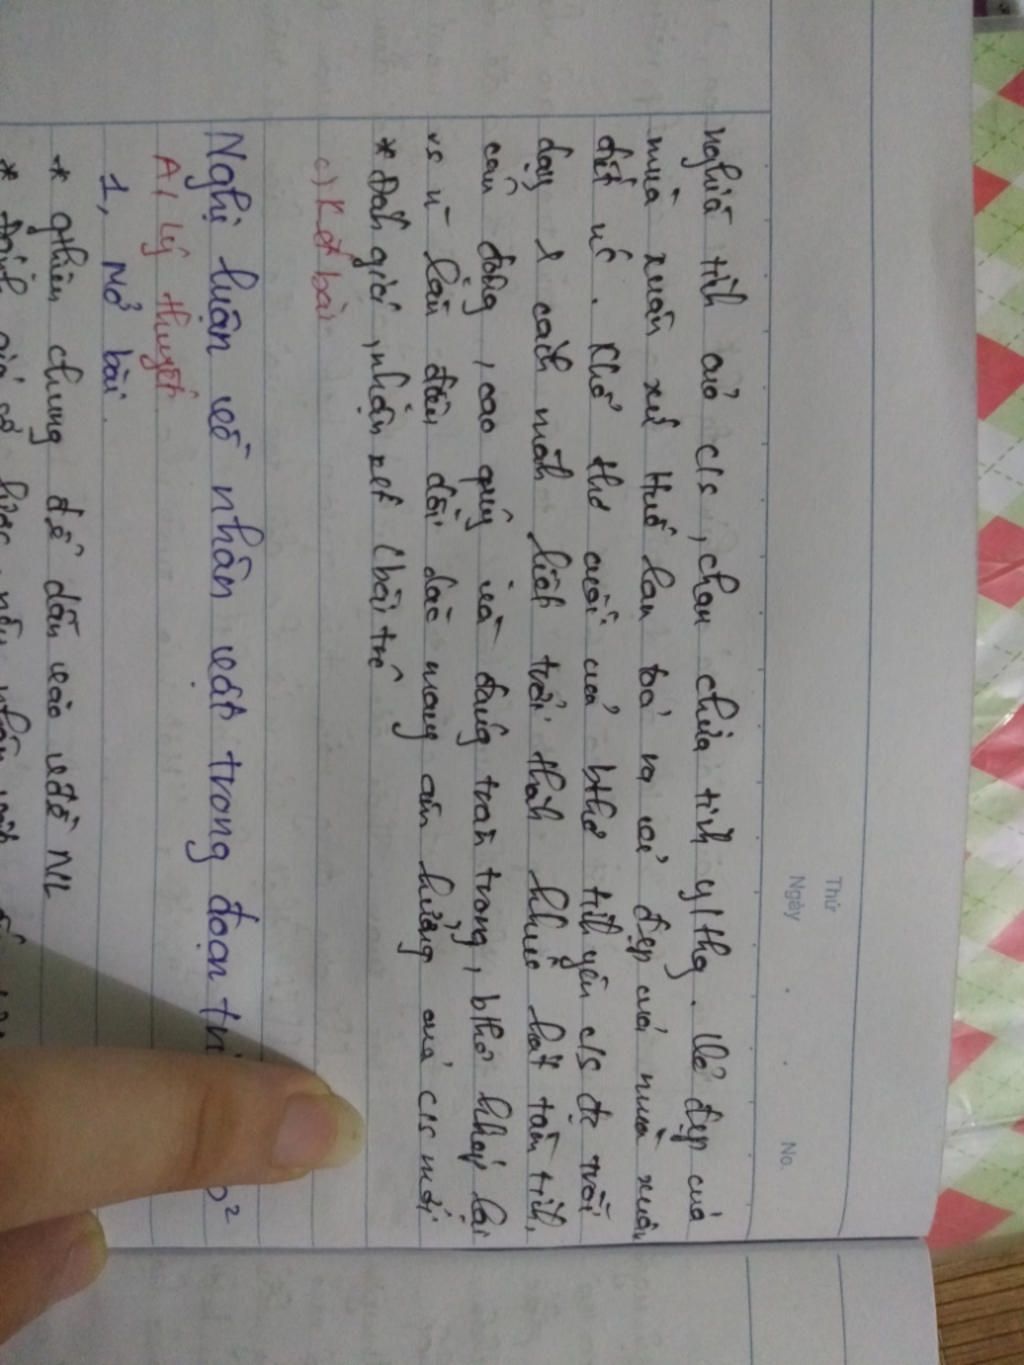 Thứ
Ngày
No.
nghĩa tình cảo c/s, chan chứa tình y/thg. Vẻ đẹp của
mùa xuân xứ Huế lan toả ra vẻ đẹp của mùa xuân
đất nc. Khổ thơ cuối của bthơ tình yêu c/s đc trỗi
dạy 1 cách mãnh liệt trở thành khúc hát tâm tình,
cảm động, cao quý và đáng trân trọng, bthơ khép lại
vs n lần điệu dồi dào mang âm hưởng của c/s mới
* Đánh giá, nhận xét (bài thơ
c) Kết bài
Nghị luận về nhân vật trong đoạn tr
A/ Lý thuyết
1, Mở bài.
* ghiên chung để dẫn vào vđề NL
* Đánh giá sơ lược